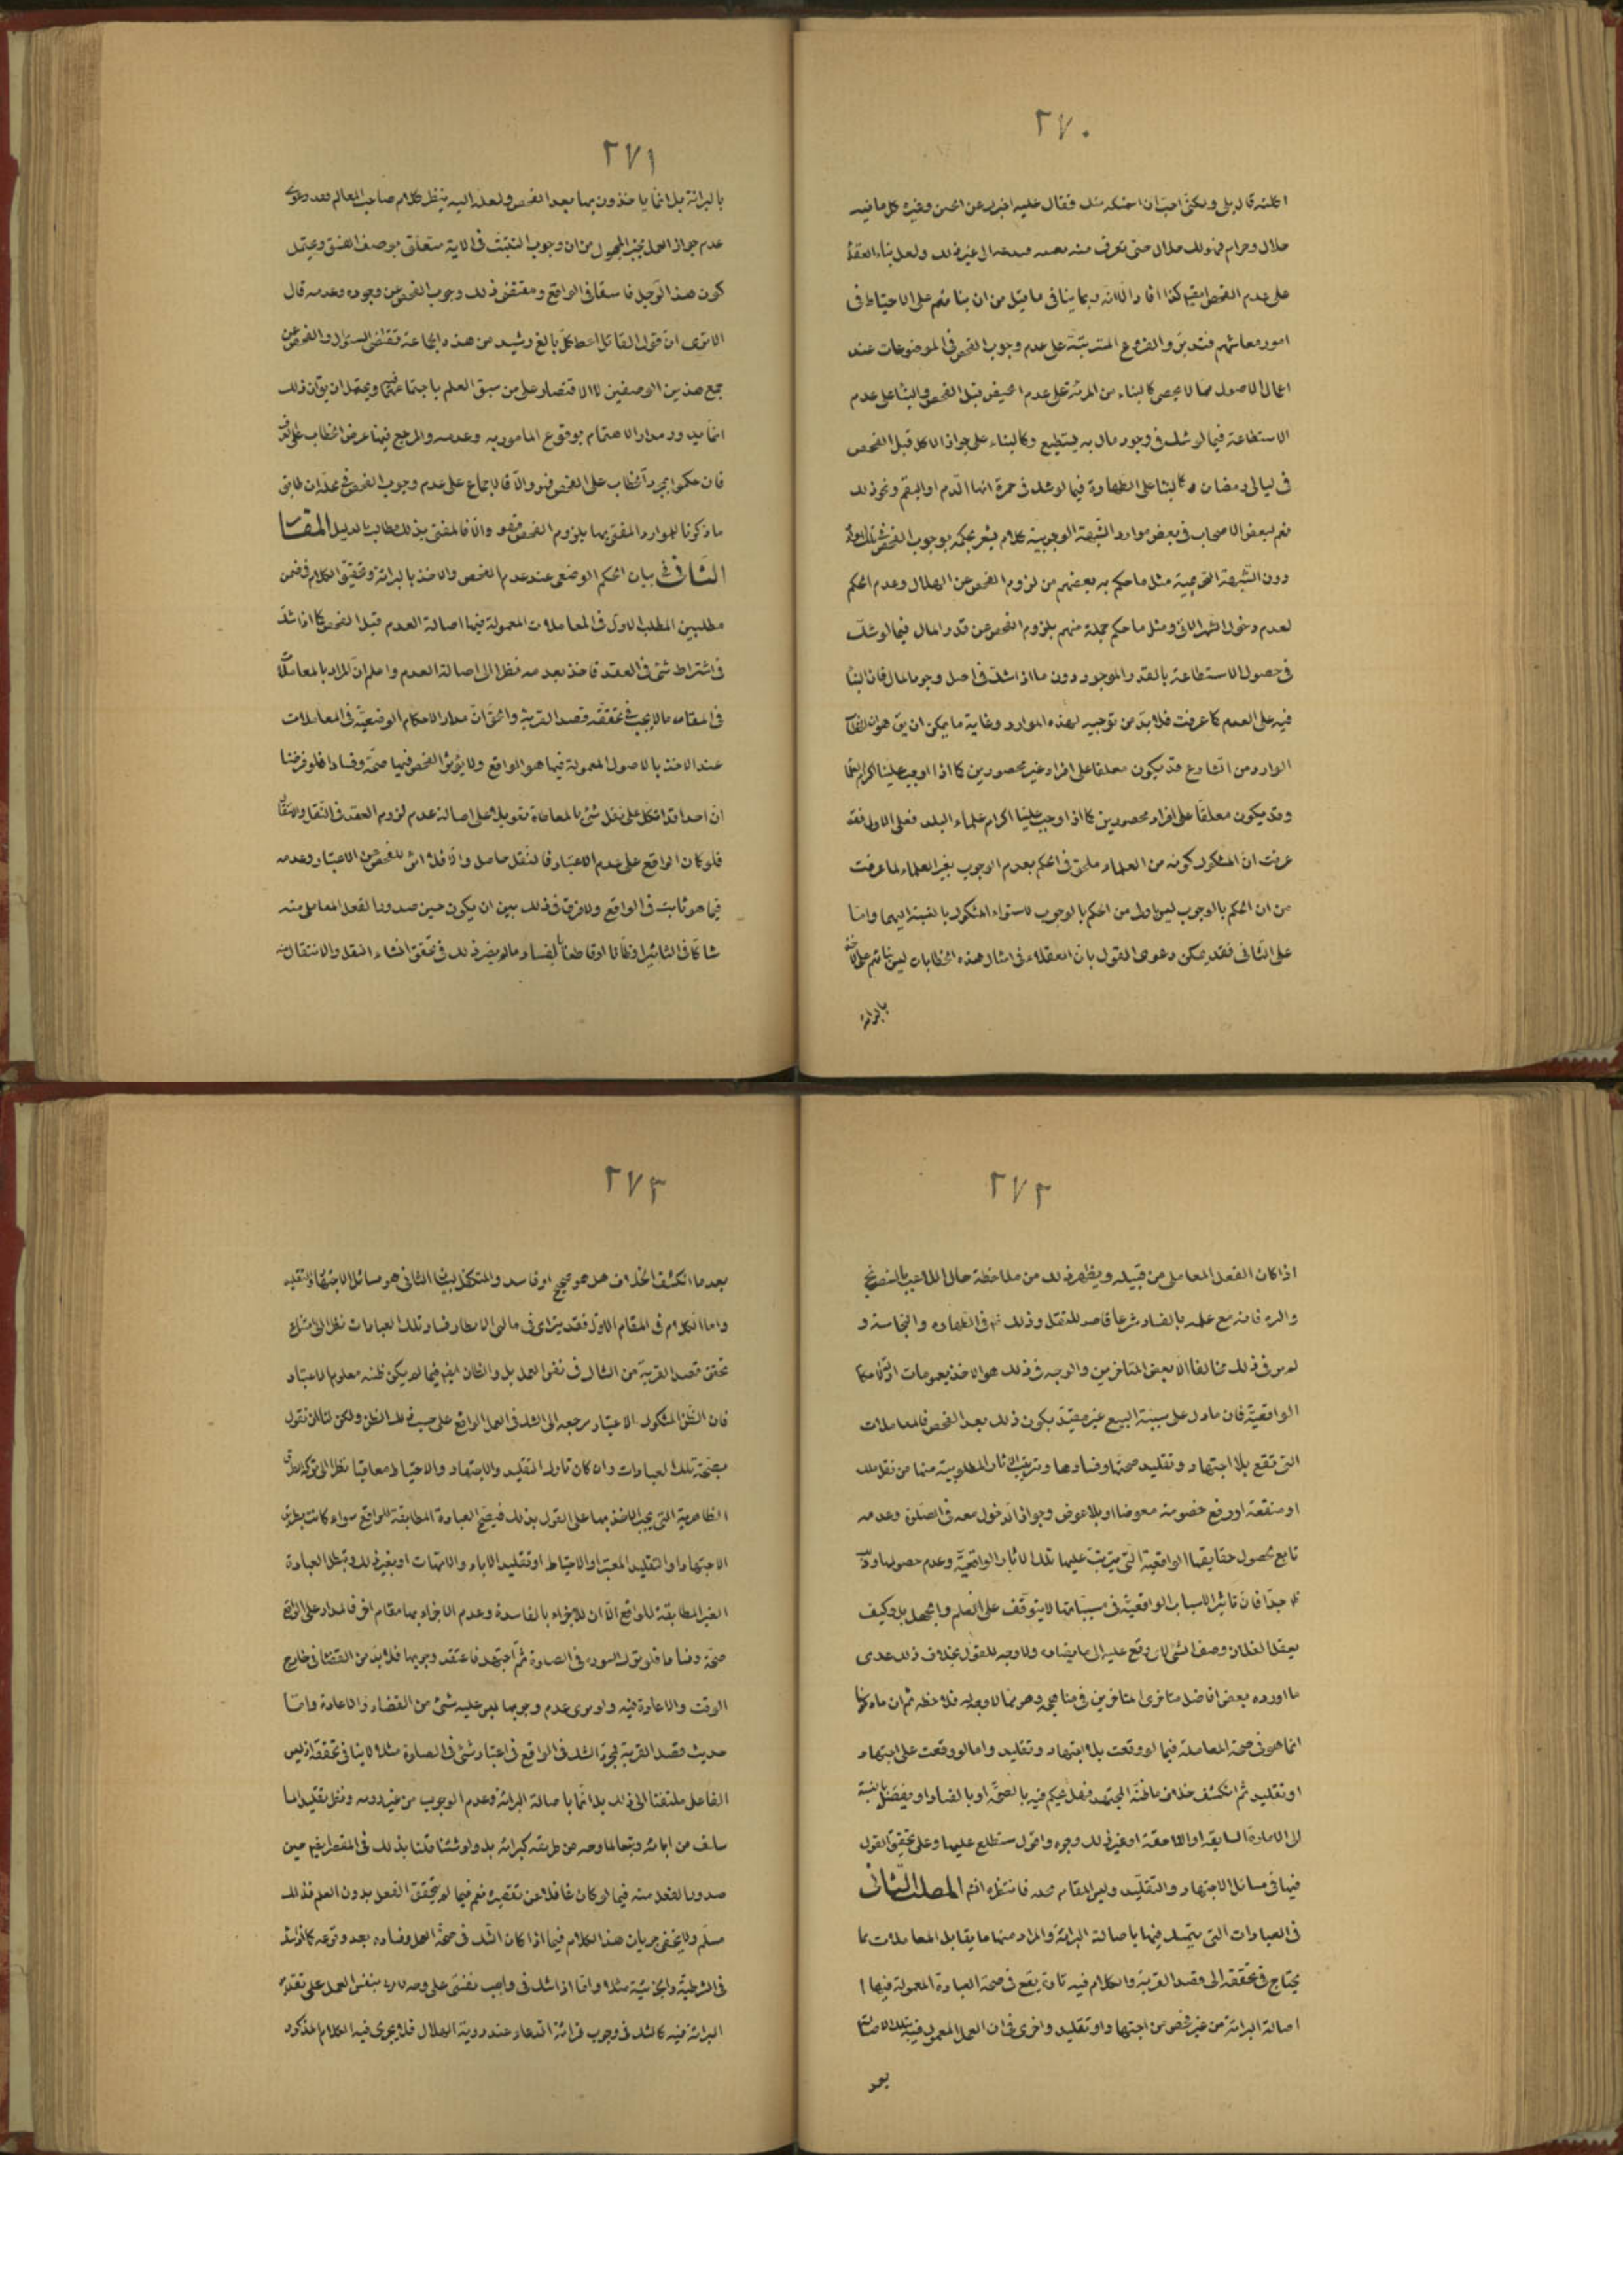 ٢٧٠
حلال وحرام فهو لك حلال حتى تعرف منه بعينه فتدعه الى غير ذلك ولعل بناء العقلاء
على عدم الفحص ايضا كذا افاد الا انه ربما ينافى ما قيل من ان بنائهم على الاحتياط فى
امور معاشهم فتدبر والفروع المترتبة على عدم وجوب الفحص فى الموضوعات عند
اعمال الاصول مما لا يحصى كالبناء من المرئة على عدم الحيض قبل الفحص والبناء على عدم
الاستطاعة فيما لو شك فى وجود مال به يستطيع وكالبناء على جواز الاكل قبل الفحص
فى ليالى رمضان وكالبناء على الطهارة فيما لو شك فى حمرة انها الدم او البقم ونحو ذلك
نعم لبعض الاصحاب فى بعض موارد الشبهة الوجوبية كلام يشعر بحكمه بوجوب الفحص فى تلك الموارد
دون الشبهة التحريمية مثل ما حكم به بعضهم من لزوم الفحص عن الهلال وعدم الحكم
لعدم دخول الشهر الاتى ومثل ما حكم جملة منهم بلزوم الفحص عن قدر المال فيما لو شك
فى حصول الاستطاعة بالقدر الموجود دون ما اذا شك فى اصل وجود المال فان البناء
فيه على العدم كما عرفت فلا بد من توجيه لهذه الموارد وغاية ما يمكن ان يق هو ان الخطاب
الوارد من الشارع قد يكون معلقا على افراد غير محصورين كما اذا اوجب علينا اكرام العلماء
وقد يكون معلقا على افراد محصورين كما اذا اوجب علينا اكرام علماء البلد فعلى الاول فقد
عرفت ان المشكوك كونه من العلماء ملحق فى الحكم بعدم الوجوب بغير العلماء لما عرفت
من ان الحكم بالوجوب ليس اولى من الحكم بالوجوب لاستواء المشكوك بالنسبة اليهما واما
على الثانى فقد يمكن دعوى القول بان العقلاء فى امثال هذه الخطابات ليس بنائهم على الاخذ
بالبرائة
٢٧١
بالبرائة بل انما ياخذون بها بعد الفحص ولعله اليه ينظر كلام صاحب المعالم فى دعوى
عدم جواز العمل بخبر المجهول من ان وجوب التثبت فى الاية متعلق بوصف الفسق ويحتمل
كون هذا الرجل فاسقا فى الواقع ومقتضى ذلك وجوب الفحص عن وجوده وعدمه قال
الا ترى ان قول القائل اعط كل بالغ رشيد من هذه الجماعة يقتضى السؤال والفحص عن
جمع هذين الوصفين لا الاقتصار على من سبق العلم باجتماعهما فيه ويحتمل ان يق ان ذلك
انما يدور مدار الاهتمام بوقوع المامور به وعدمه والمرجع فيها عرض الخطاب على العرف
فان حكموا بمجرد الخطاب على الفحص فهو والا فالاجماع على عدم وجوب الفحص فى محله ان طابق
ما ذكرنا للموارد المفتى بها بلزوم الفحص فهو والا فالمفتى بذلك مطالب بالدليل المقام
الثانى فى بيان الحكم الوضعى عند عدم الفحص والاخذ بالبرائة وتحقيق الكلام فى ضمن
مطلبين المطلب الاول فى المعاملات المعمولة فيها اصالة العدم قبل الفحص كما اذا شك
فى اشتراط شئ فى العقد فاخذ بعدمه نظرا الى اصالة العدم واعلم ان المراد بالمعاملة
فى المقام ما لا يجب فى تحققه قصد القربة والحق ان مدار الاحكام الوضعية فى المعاملات
عند الاخذ بالاصول المعمولة فيها هو الواقع ولا يؤثر الفحص فيها صحة وفسادا فلو فرضنا
ان احدا قد اتكل على نقل شئ بالمعاطاة تعويلا على اصالة عدم لزوم العقد فى النقل والانتقال
فلو كان الواقع على عدم الاعتبار فالنقل حاصل والا فلا اثر للفحص عن الاعتبار وعدمه
فيما هو ثابت فى الواقع ولا فرق فى ذلك بين ان يكون حين صدور الفعل المعاملى منه
شاكا فى التاثير او ظانا او قاطعا بالفساد ما لم يضر ذلك فى تحقق انشاء النقل والانتقال منه
٢٧٢
اذا كان الفعل المعاملى من قبيله ويظهر ذلك من ملاحظة حال اللاعب بالشطرنج
والنرد فانه مع علمه بالفساد شرعا قاصد للنقل وذلك فى الطهارة والنجاسة و
لم نر فى ذلك مخالفا الا بعض المتاخرين والوجه فى ذلك هو الاخذ بعمومات ادلة الاحكام
الواقعية فان ما دل على سببية البيع غير مقيد بكون ذلك بعد الفحص فالمعاملات
التى تقع بلا اجتهاد وتقليد صحتها وفسادها وترتب الاثار المطلوبة منها من نقل ملك
او منفعة او رفع خصومة معوضا او بلا عوض وجواز الدخول معه فى الصلوة وعدمه
تابع لحصول حقايقها الواقعية التى يترتب عليها تلك الاثار الواقعية وعدم حصولها وذلك
ظ جدا فان تاثير الاسباب الواقعية فى مسبباتها لا يتوقف على العلم والجهل بل وكيف
يعقل انقلاب وصف الشئ لان وقع عليه الى ما يضاده ولا وجه للقول بخلاف ذلك عدى
ما اورده بعض افاضل متاخرى المتاخرين فى مناهجه وهو مما لا وجه له فلاحظه ثم ان ما ذكرنا
انما هو فى صحة المعاملة فيما لو وقعت بلا اجتهاد وتقليد واما لو وقعت على اجتهاد
او تقليد ثم انكشف خلاف ما ظنه المجتهد فهل يحكم فيه بالصحة او بالفساد او يفصل بالنسبة
الى الامارة السابقة او اللاحقة او غير ذلك وجوه واقول ستطلع عليها وعلى تحقيق القول
فيها فى مسائل الاجتهاد والتقليد وليس المقام محله فانتظره انتم المطلب الثانى
فى العبادات التى يتمسك فيها باصالة البرائة والمراد منها ما يقابل المعاملات مما
يحتاج فى تحققه الى قصد القربة والكلام فيه تارة يقع فى صحة العبادة المعمولة فيها
اصالة البرائة من غير فحص عن اجتهاد او تقليد واخرى فى ان العمل المعمول فيه تلك الاصالة
بعد
٢٧٣
بعد ما انكشف الخلاف هل هو صحيح او فاسد والمتكفل لبيان الثانى هو مسائل الاجتهاد والتقليد
واما الكلام فى المقام الاول فقد يترائى فى بادى الانظار فساد تلك العبادات نظرا الى امتناع
تحقق قصد القربة من الشاك فى نفس العمل بل والظان ايضا فيما لم يكن ظنه معلوم الاعتبار
فان الظن المشكوك الاعتبار مرجعه الى الشك فى العمل الواقع على حسب ذلك الظن ولكن لقائل ان يقول
بصحة تلك العبادات وان كان تارك التقليد والاجتهاد والاحتياط معاقبا نظرا الى تركه الطرق
الظاهرية التى يجب الاخذ بها على القول بذلك فيصح العبادة المطابقة للواقع سواء كانت بطريق
الاجتهاد او التقليد المعتبر او الاحتياط او تقليد الاباء والامهات او بغير ذلك وتبطل العبادة
الغير المطابقة للواقع الا ان للاجزاء بالفاسدة وعدم الاجزاء بها مقام اخر فالمدار على الواقع
صحة وفسادا فلو ترك السورة فى الصلوة ثم اجتهد فاعتقد وجوبها فلا بد من القضاء فى خارج
الوقت والاعادة فيه ولو يرى عدم وجوبها ليس عليه شئ من القضاء والاعادة واما
حديث قصد القربة فمجرد الشك فى الواقع فى اعتبار شئ فى الصلوة مثلا لا ينافى تحققه اذ ليس
الفاعل ملتفتا الى ذلك بل انما باصالة البرائة وعدم الوجوب من غير رويه ونقل تقليد لما
صدور الفعل منه فيما لو كان غافلا عن تقصيره نعم فيما لم يتحقق الفعل بدون العلم فذلك
مسلم ولا يخفى جريان هذا الكلام فيما اذا كان الشك فى صحة العمل وفساده بعد وقوعه كما اذا شك
فى الشرطية والجزئية مثلا واما اذا شك فى واجب نفسى
البرائة فيه كالشك فى وجوب قرائة الدعاء عند رؤية الهلال فلا يجرى فيه الكلام المذكور